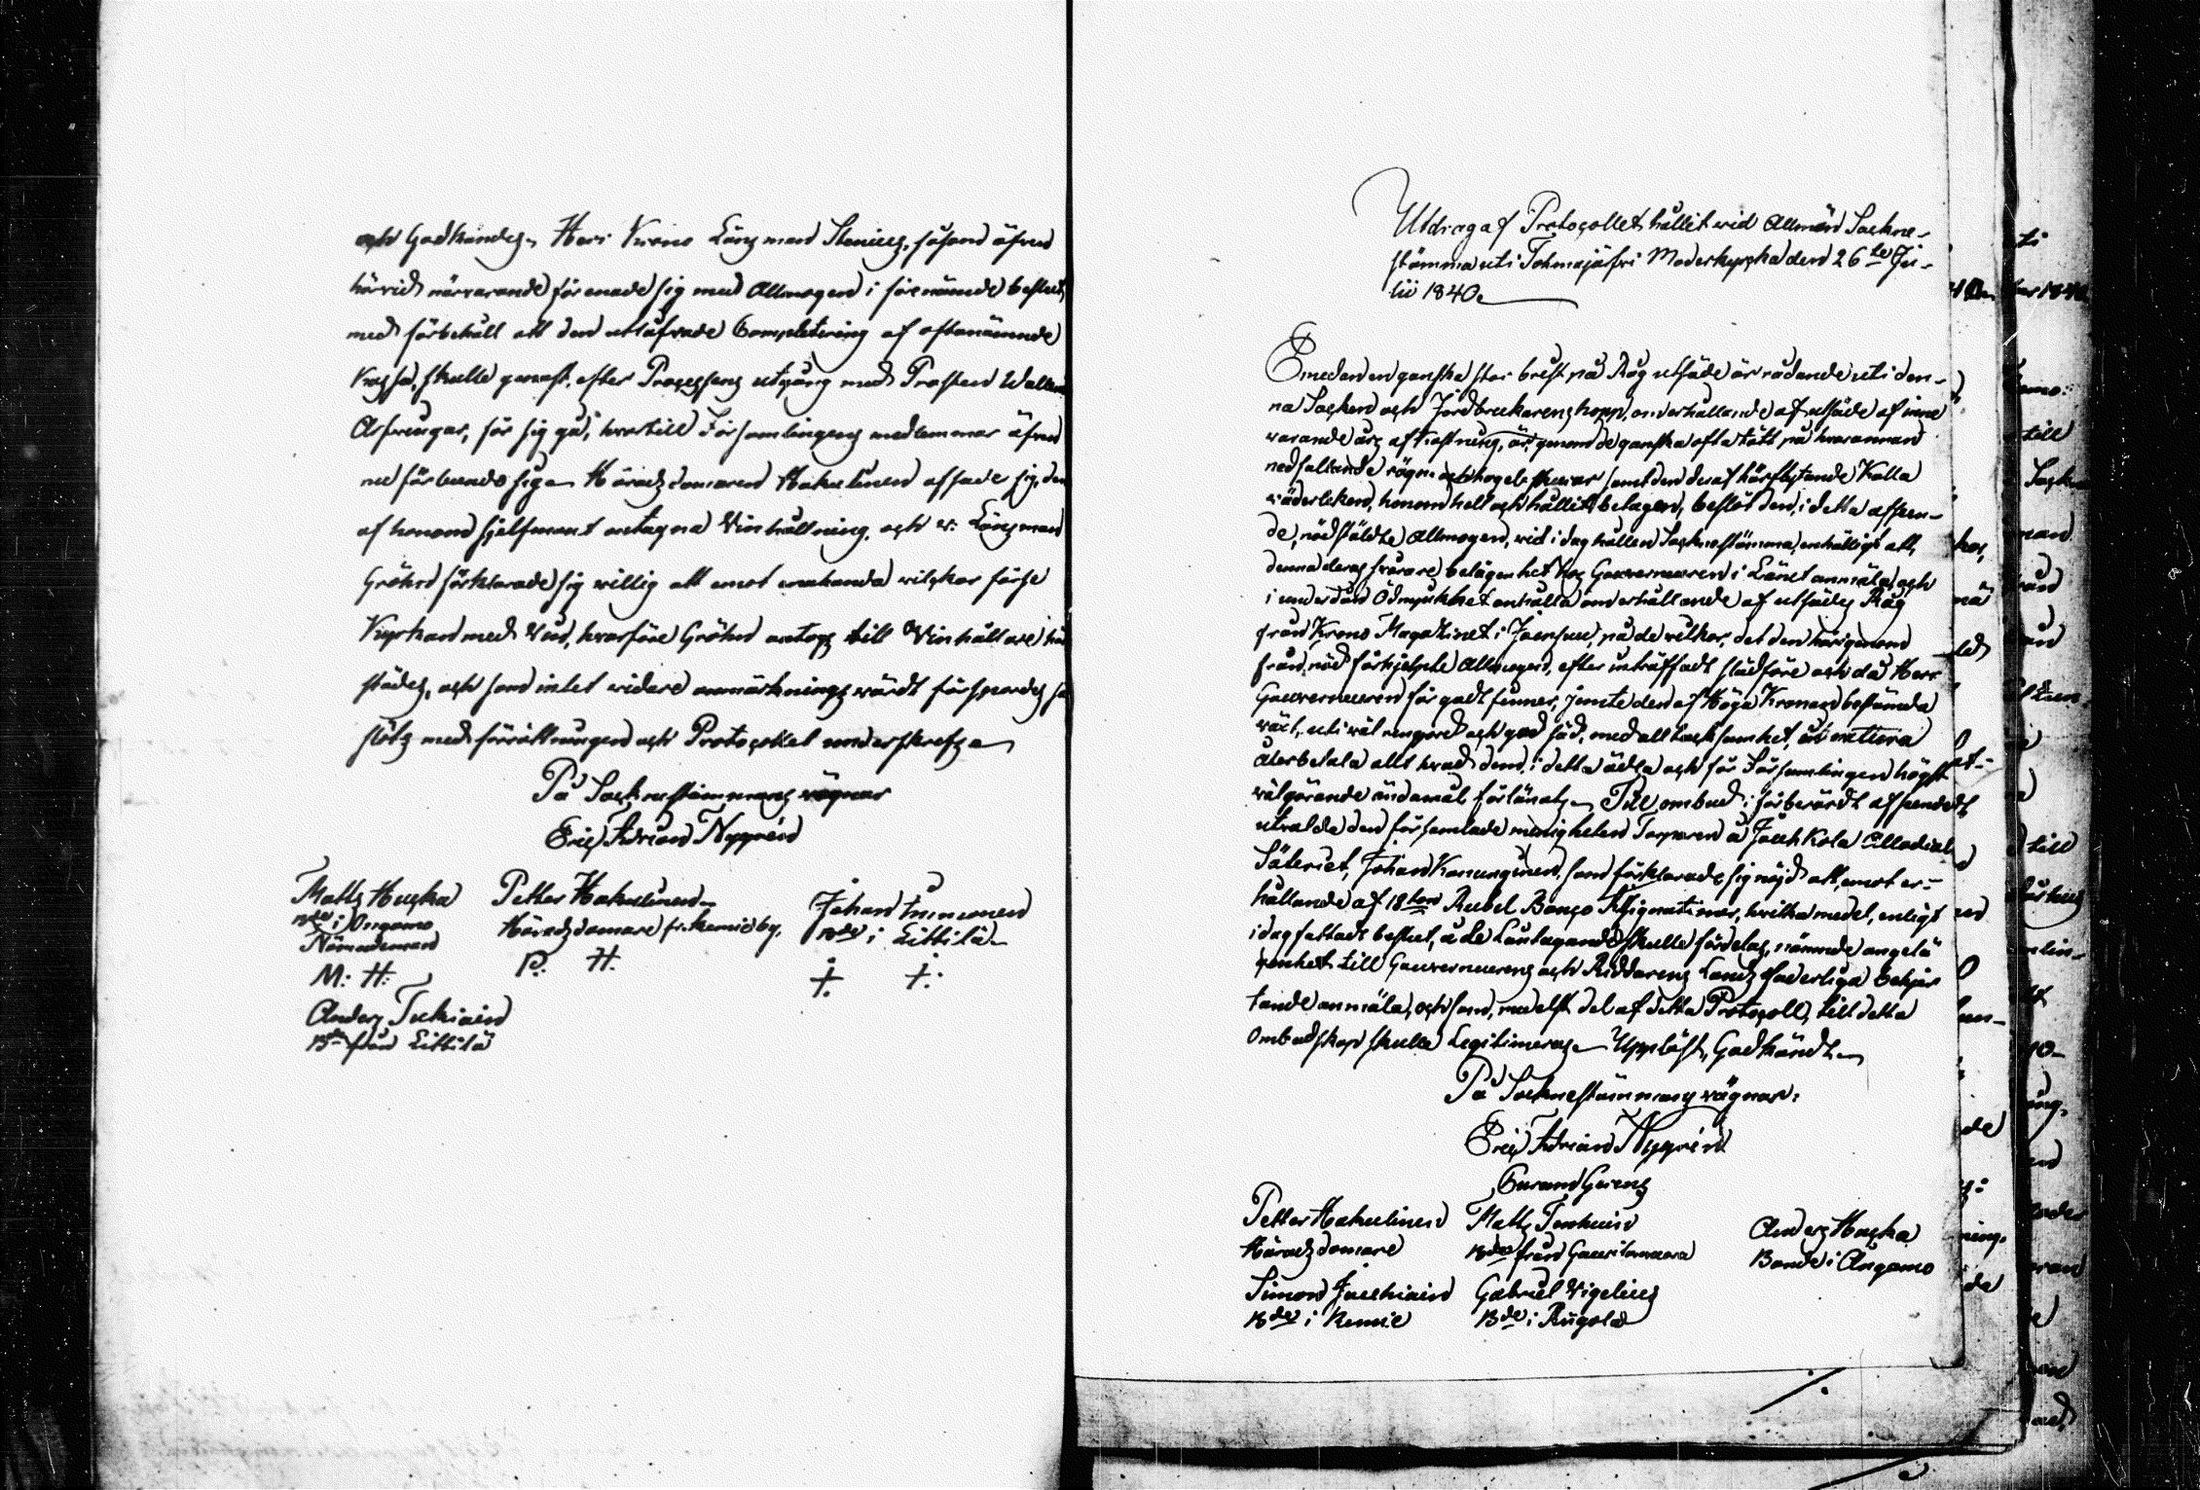 och Godkändes. Herr Krono Länsman Stenius, såsom äfven
härvid närvarande förenade sig med Allmogen i förenämde beslut,
med förbehåll att den utsåfvade Completering af oftanämnde
Kassa, skulle genast, efter Processens utgång med Prosten
Arfvingar, för sig gå, hvartill Församlingens medlemmar äfven
förbundo sig. Häradsdomaren Hakulinen afsade sig, den
af honom sjelfmant antagna Vinhållning, och v: Länsman
Gröhn förklarade sig willig att emot enahanda wilkor förse
Kyrkan med Vin, hvarföre Gröhn antogs till Vinhållare
städes, och som intet widare anmärknings wärdt förspordes
slöts med förrättningen och Protocollet underskrefs.
På Socknestämmans wägnar
Eric Adrian Nygrén
Matts Huska
Bde i Ongamo
Nämndeman
M: H:
Petter Hakulinen
Häradsdomare fr. Kemie by,
P. H.
Johan
Bde i Littilä
Anders Tukiain
Bde från Littilä
Utdrag af Protocollet hållit wid Allmän Sockne-
stämma uti Tohmajärfvi Moderkyrka den 26te Ju-
lii 1840.
Emedan en ganska stor brist på Råg utsäde är rådande uti den-
na Socken och Jordbrukarens hopp, om erhållande af utsäde af inne
warande års afkastning, är, genom de ganska ofta tätt på hvarannan
nedfallande rägn och hagelskurar samt den deraf härflytande Kalla
wäderleken, honom helt och hållit betagen, beslöt den, i detta afseen-
de, nödstäldte Allmogen, wid i dag hållen Socknestämma, enhälligt att,
denna deras svårare belägenhet hos Gouverneuren i Länet anmäla, och
i underdån Ödmjukhet anhålla om erhållande af utsädes Råg
från Krono Magazinet i Joensuu, på de wilkor, det den härigenom
från nöd förhjelpte Allmogen, efter inträffadt slädföre och då Herr
Gouverneuren för godt finner, jemte den af Höga Kronan bestämda
wäxt, uti wäl rengord och god säd, med all tacksamhet, in natura
återbetala allt hvad dem, i detta ädla och för Församlingen högst
wälgörande ändamål förlänats. Till ombud i förberördt afseende
utvalde den församlade menigheten Torparen å Jouhkola Allodial
Säteriet, Johan Konunginen, som förklarade sig nöjd att, emot er-
hållande af 18 ton Rubel Banco Assignationer, hvilka medel, enligt
i dag fattadt beslut, å de Låntagande skulle fördelas, nämnde angelä
genhet till Gouverneurens och Riddarens Landsfaderliga behjer
tande anmäla, och som, medelst del af detta Protocoll, till detta
Ombudskap skulle Legitimeras. Uppläst, Godkändt.
På Socknestämmans wägnar:
Eric Adrian Nygrén
Petter Hakulinen
Häradsdomare
Matts Tenhuin
Bde från Gouvilanwaara
Anders Huska
Bonde i Ongamo
Simon Jauhiain
Bde i Kemie
Gabriel Vigelius
Bde i Rügola